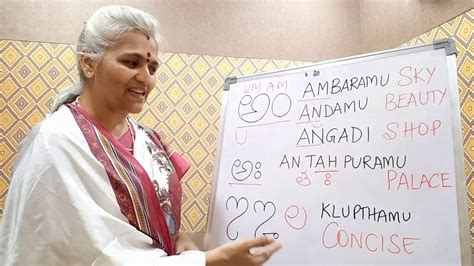 UM AM
అం AMBARAMU SKY
ANDAMU BEAUTY
ANGADI SHOP
అః AN TAH PURAMU
PALACE
ఌ KLUPTHAMU
CONCISE